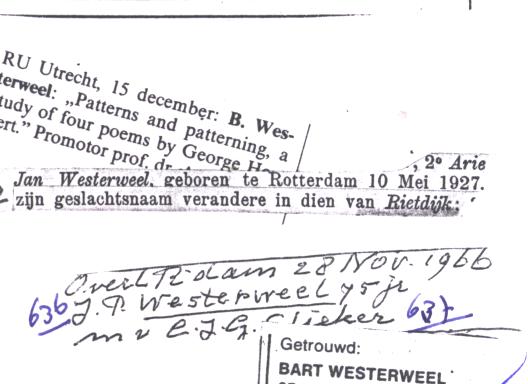 RU Utrecht, 15 december: B. Wes-
terweel: „Patterns and patterning, a
study of four poems by George H
ert." Promotor prof. dr.
, 2º Arie
Jan Westerweel, geboren te Rotterdam 10 Mei 1927.
zijn geslachtsnaam verandere in dien van Rietdijk;
Overl R'dam 28 Nov. 1966
636 J. P. Westerweel 75 jr
m v C. J. G. Slieker 637
Getrouwd:
BART WESTERWEEL